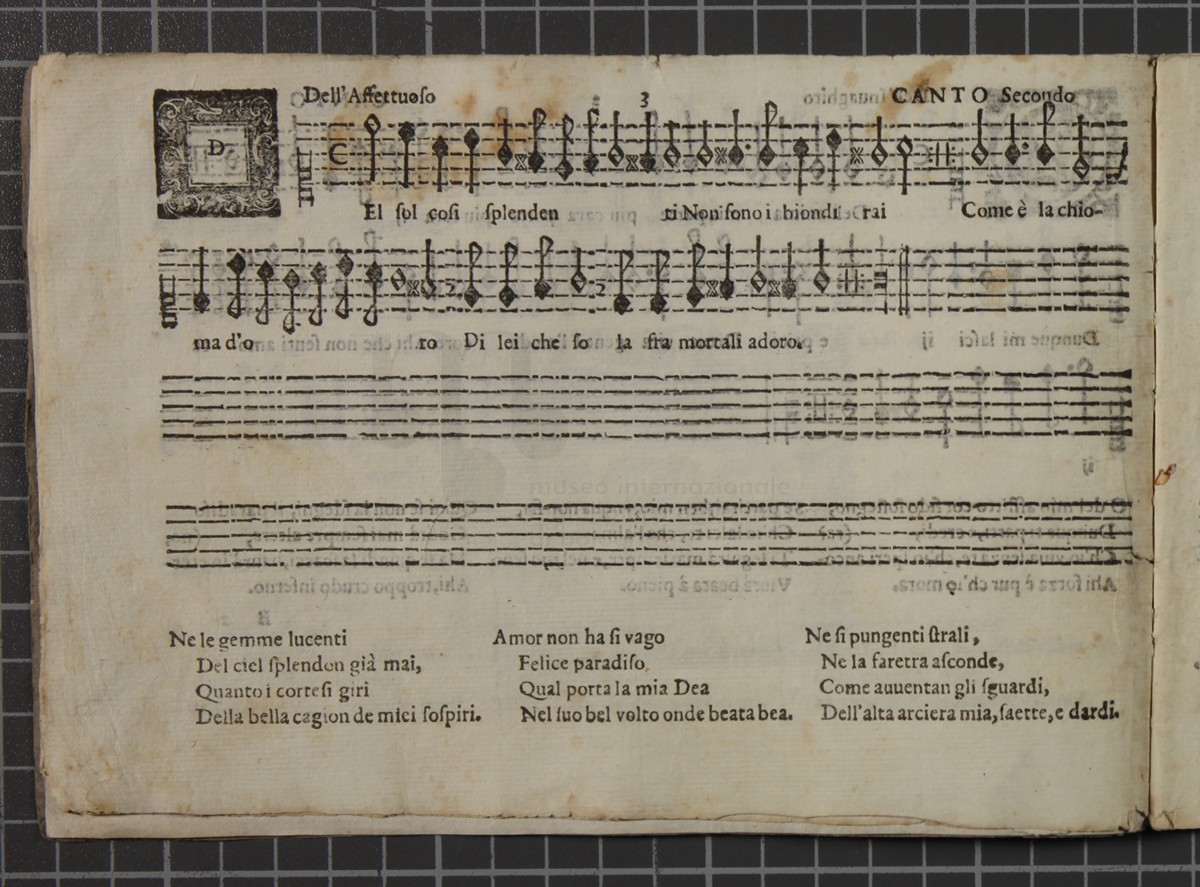 Dell'Affettuoso 3 CANTO Secondo
D
El ſol coſi ſplenden ti Non ſono i biondi rai Come è la chio-
ma d'o ro Di lei che ſo la fra mortali adoro.
museo internazionale
Ne le gemme lucenti
Del ciel ſplendon già mai,
Quanto i corteſi giri
Della bella cagion de miei ſoſpiri.
Amor non ha ſi vago
Felice paradiſo
Qual porta la mia Dea
Nel ſuo bel volto onde beata bea.
Ne ſi pungenti ſtrali,
Ne la faretra aſconde,
Come auuentan gli ſguardi,
Dell'alta arciera mia, ſaette, e dardi.